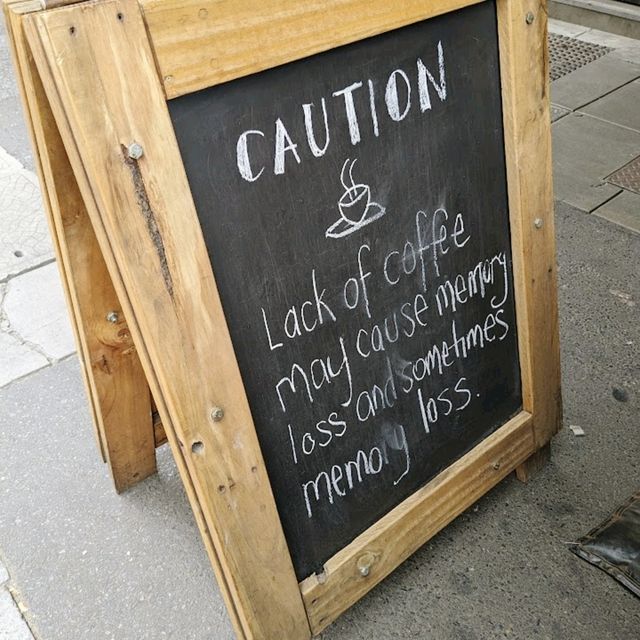 CAUTION
Lack of coffee
may cause memory
loss and sometimes
memory loss.